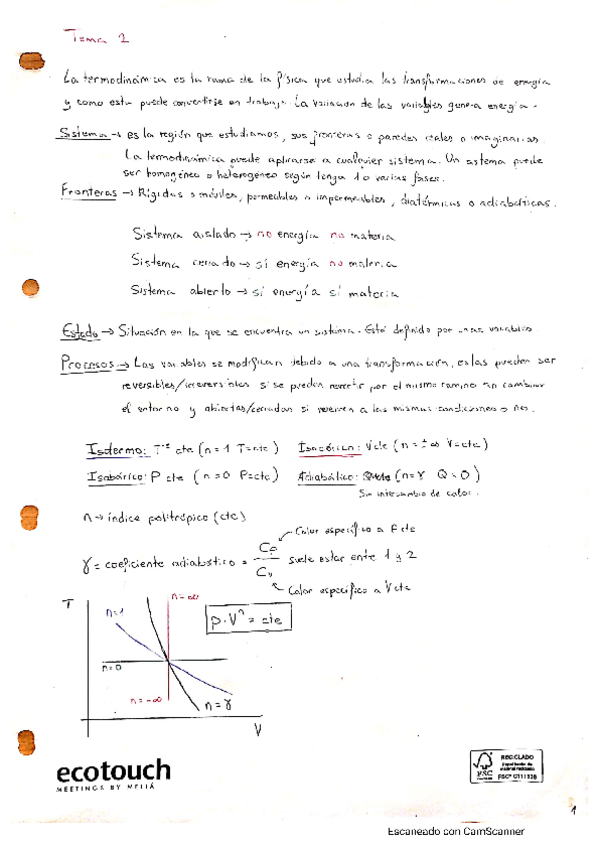 Tema 2
La termodinámica es la rama de la física que estudia las transformaciones de energía
y como esta puede convertirse en trabajo. La variación de las variables genera energía.
Sistema → es la región que estudiamos, sus fronteras o paredes reales o imaginarias.
La termodinámica puede aplicarse a cualquier sistema. Un sistema puede
ser homogéneo o heterogéneo según tenga 1 o varias fases.
Fronteras → Rígidas o móviles, permeables o impermeables, diatérmicas o adiabáticas.
Sistema aislado → no energía no materia
Sistema cerrado → sí energía no materia
Sistema abierto → sí energía sí materia
Estado → Situación en la que se encuentra un sistema. Está definido por unas variables
Procesos → Las variables se modifican debido a una transformación, estas pueden ser
reversibles/irreversibles si se pueden revertir por el mismo camino sin cambiar
el entorno y abiertas/cerradas si vuelven a las mismas condiciones o no.
Isotermo: Tª cte (n=1 T=cte) Isocórica: V cte (n=±∞ V=cte)
Isobárico: P cte (n=0 P=cte) Adiabático: (n=γ Q=0)
Sin intercambio de calor.
n → índice politrópico (cte)
Calor específico a P cte
γ = coeficiente adiabático = Cp / Cv suele estar entre 1 y 2
Calor específico a V cte
T
n=1
n=∞
p·Vⁿ = cte
n=0
n=-∞
n=γ
V
ecotouch
MEETINGS BY MELIÁ
RECICLADO
FSC
1
Escaneado con CamScanner